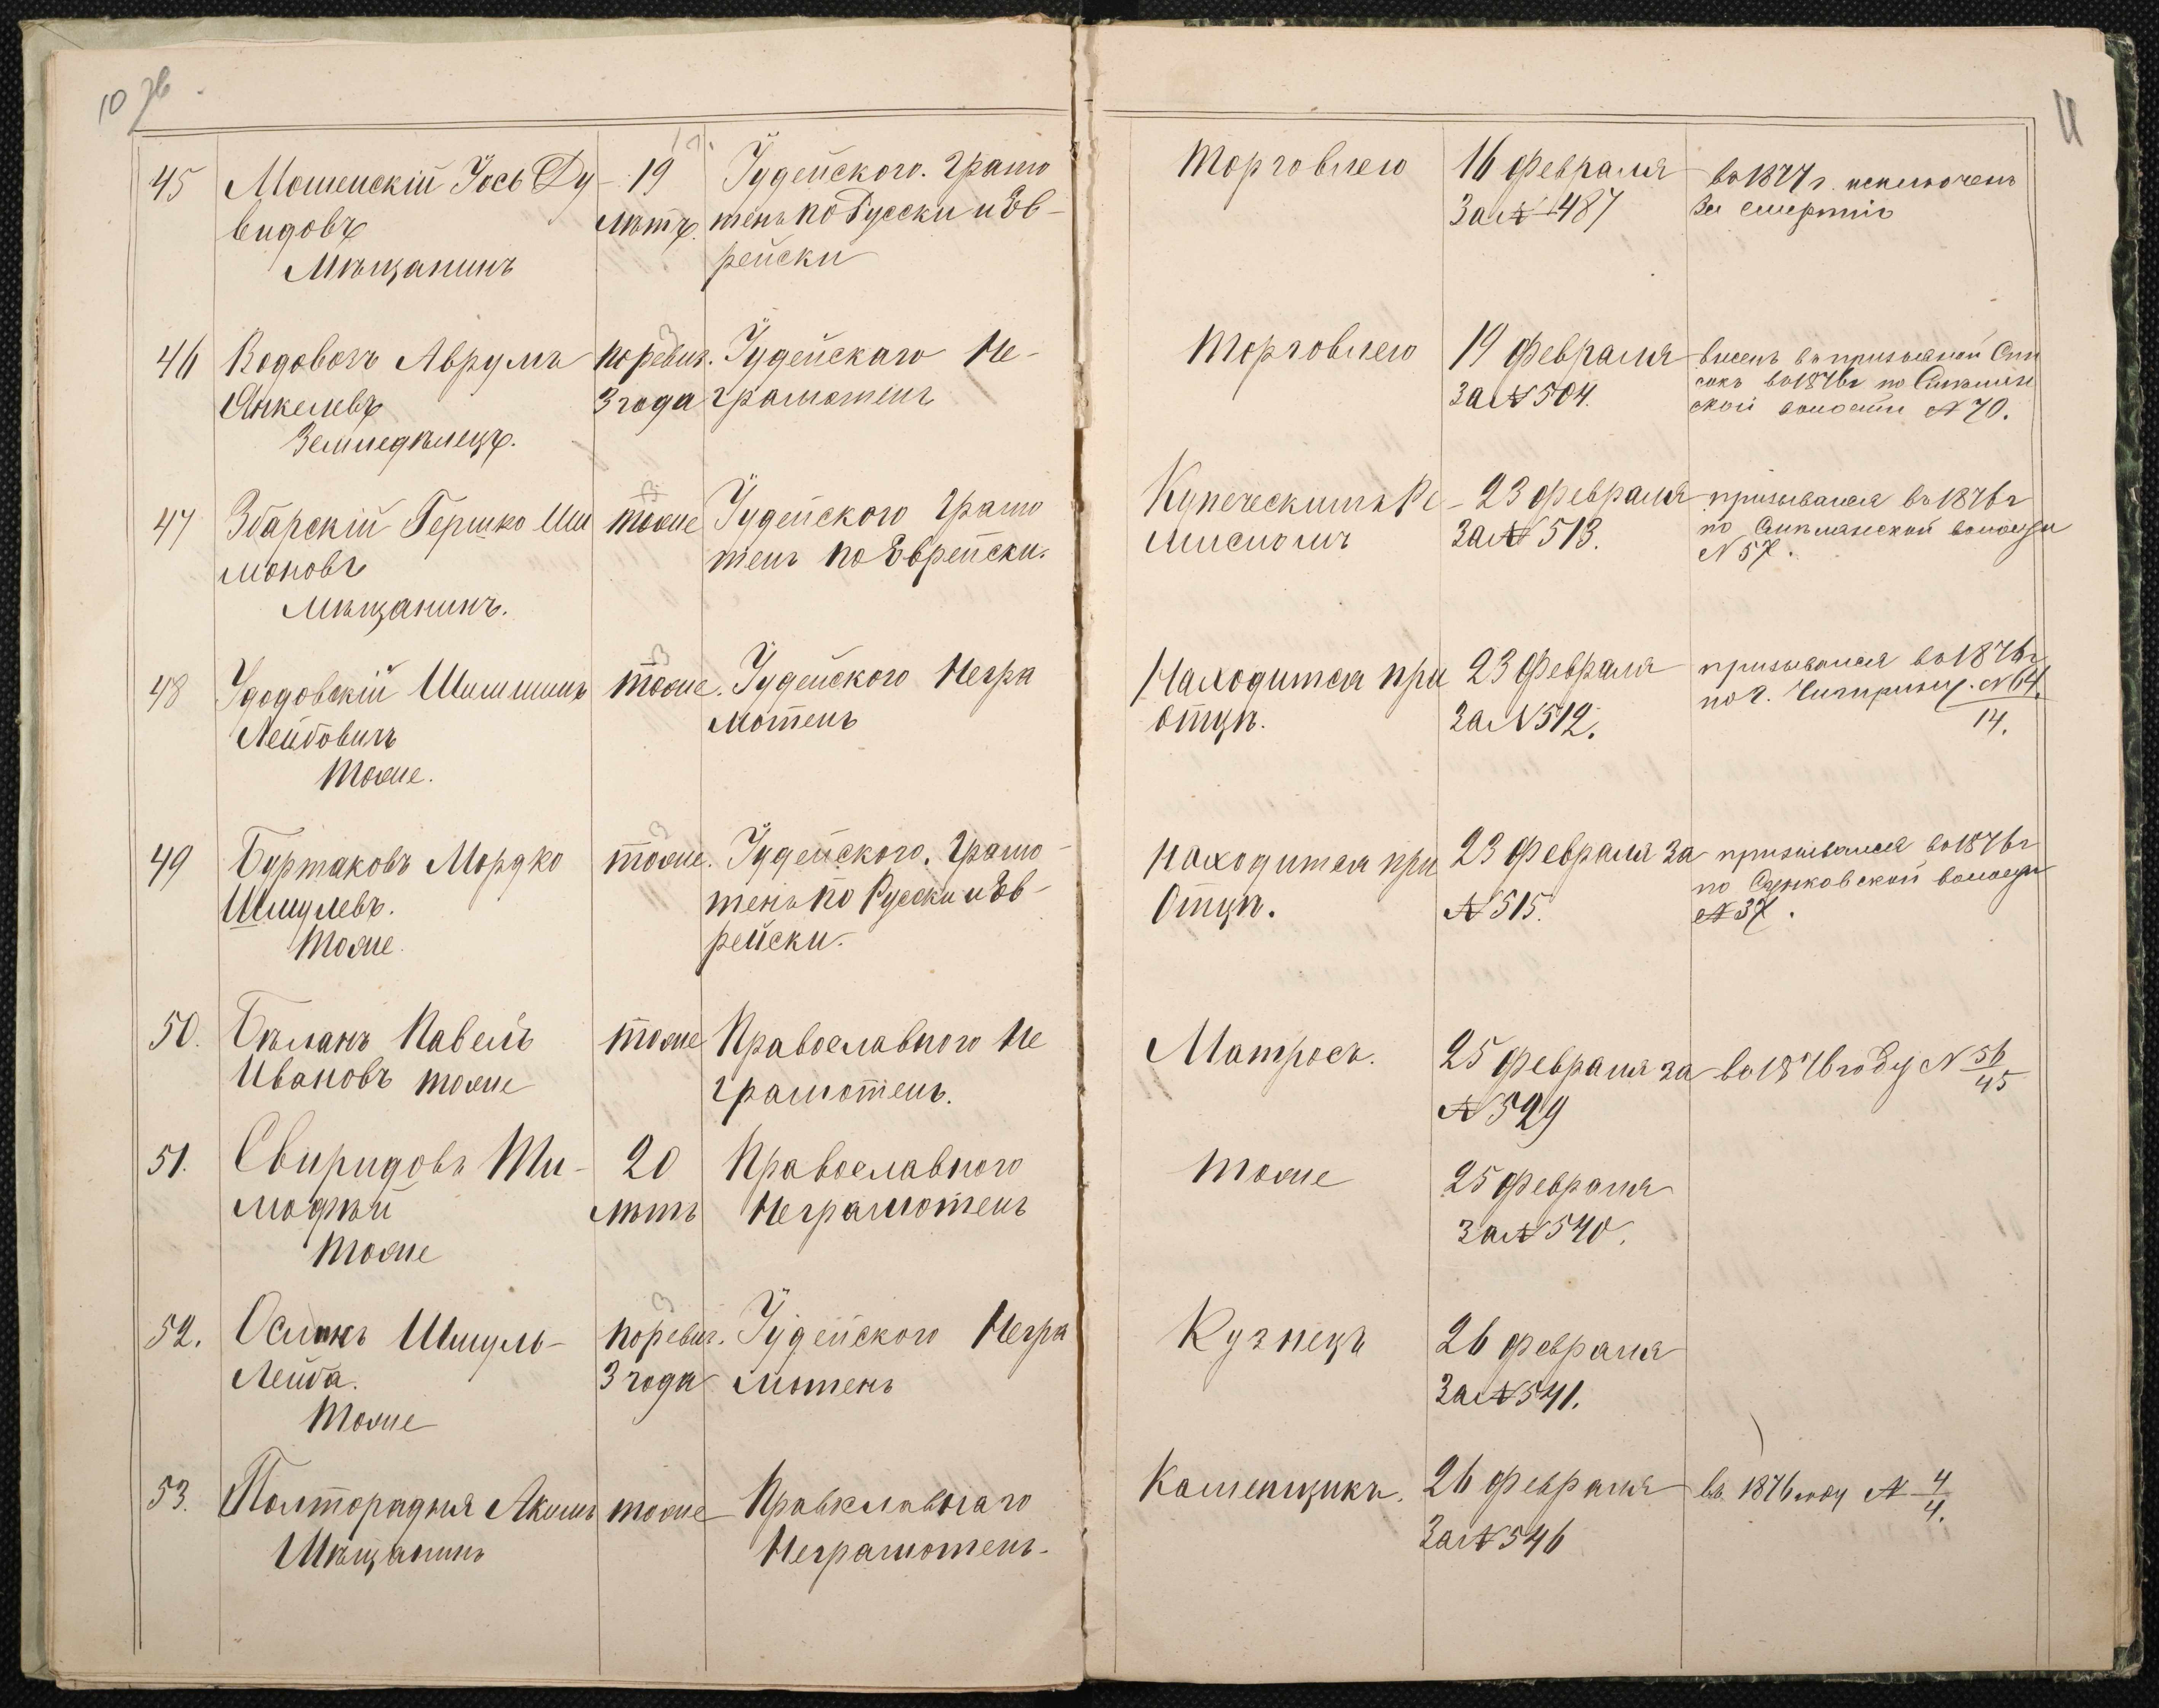 10 об.
11
45 Мошенскій Іось Ду- 19 Іудейского. Грамо
видовъ лѣтъ. тенъ по Русски и Ев-
Мѣщанинъ рейски
Торговлею 16 февраля въ 1877 г. исключенъ
За № 487 за смертію
46 Водовозъ Аврумъ по ревиз. Іудейскаго Не-
Янкелевъ 3 года грамотенъ
Земледѣлецъ.
Торговлею 19 февраля внесенъ въ призывной Спи
За № 504. сокъ въ 1876 г по
ской волости № 70.
47 Збарскій Гершко Ши тоже Іудейского Грамо
моновъ тенъ по Еврейски.
Мѣщанинъ.
Купеческимъ Ре- 23 февраля призывался въ 1876 г
месломъ За № 513. по волости
№ 57.
48 Удодовскій Шимшинъ тоже. Іудейского Негра
Лейбовичъ мотенъ
Тоже.
Находится при 23 февраля призывался въ 1876 г
отцѣ. За № 512. по г. Чигирину. № 64
14.
49 Буртаковъ Мордко тоже. Іудейского. Грамо-
Шмулевъ. тенъ по Русски и Ев-
Тоже. рейски.
Находится при 23 февраля За призывался въ 1876 г
Отцѣ. № 515. по волости
№ 37.
50. Бѣланъ Павелъ тоже Православного Не
Ивановъ тоже грамотенъ.
Матросъ. 25 февраля за въ 1876 году № 56
№ 529 45
51. Свиридовъ Ти- 20 Православного
мофѣй лѣтъ Неграмотенъ
Тоже
тоже 25 февраля
За № 540.
52. Шмуль- по ревиз. Іудейского Негра
Лейба. 3 года мотенъ
Тоже
Кузнецъ 26 февраля
За № 541.
53. Полторадня Акимъ тоже Православнаго
Мѣщанинъ Неграмотенъ.
Каменщикъ. 26 февраля въ 1876 году № 4
За № 546 4.